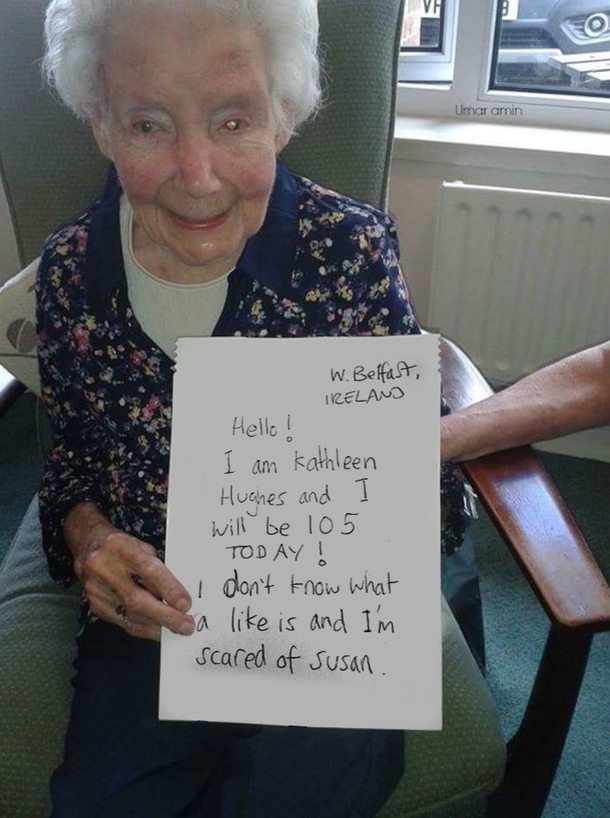 Umar amin
W. Belfast,
IRELAND
Hello!
I am Kathleen
Hughes and I
will be 105
TODAY!
I don't know what
a like is and I'm
scared of Susan.